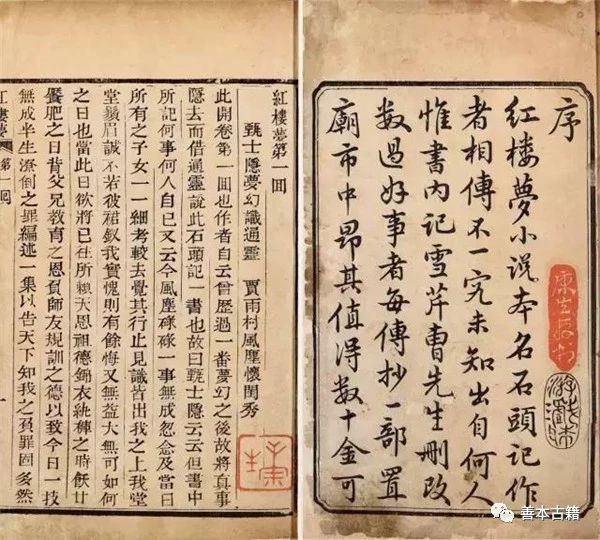 序
紅楼夢小説本名石頭記作
者相傳不一究未知出自何人
惟書内記雪芹曹先生刪改
数過好事者每傳抄一部置
廟市中昂其值得数十金可
紅樓夢第一回
甄士隱夢幻識通靈 賈雨村風塵懷閨秀
此開卷第一回也作者自云曾歷過一番夢幻之後故將真事
隱去而借通靈說此石頭記一書也故曰甄士隱云云但書中
所記何事何人自己又云今風塵碌碌一事無成忽念及當日
所有之子女一一細考較去覺其行止見識皆出我之上我堂
堂鬚眉誠不若彼裙釵我實愧則有餘悔又無益大無可如何
之日也當此日欲將已往所賴天恩祖德錦衣紈袴之時飫甘
饜肥之日背父兄教育之恩負師友規訓之德以致今日一技
無成半生潦倒之罪編述一集以告天下知我之負罪固多然
紅樓夢 第一回 一
善本古籍